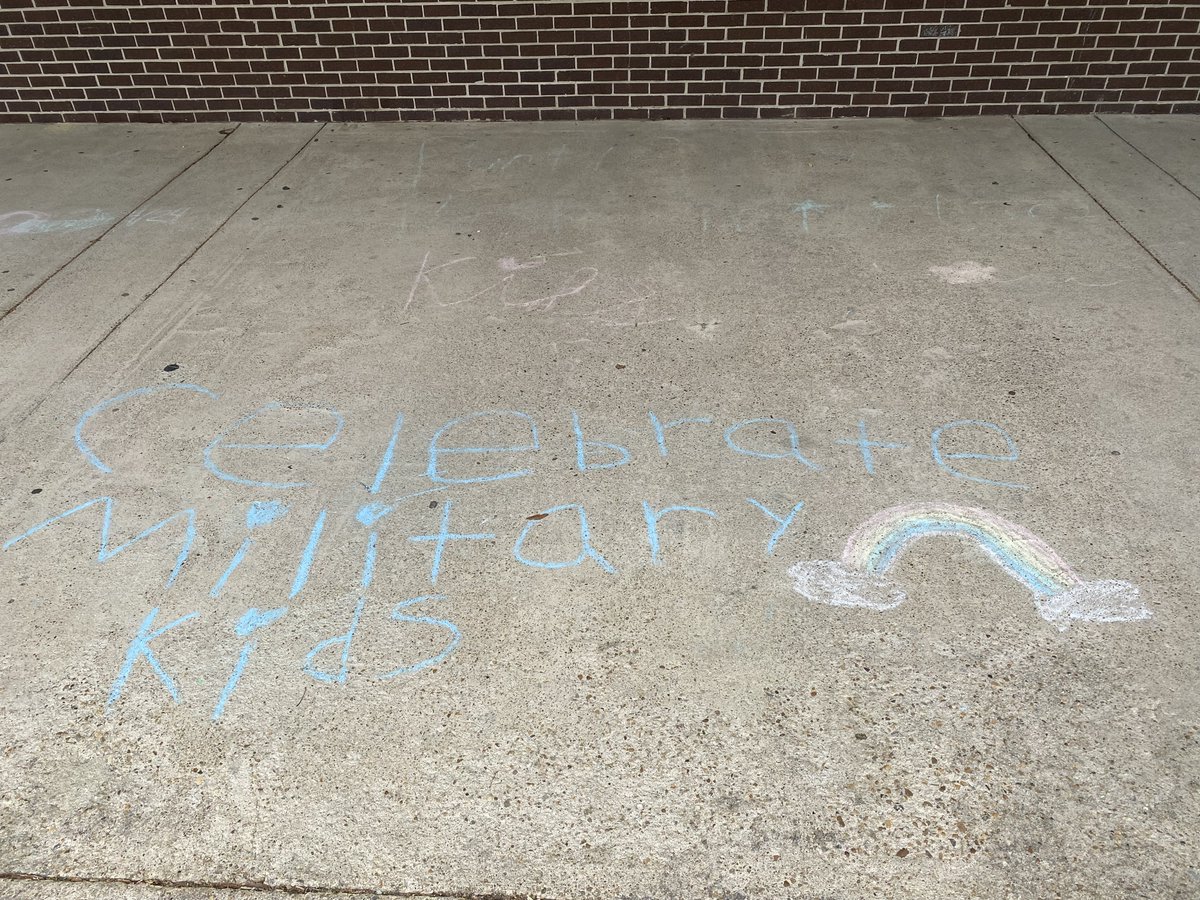 Kids
Celebrate
Military
Kids